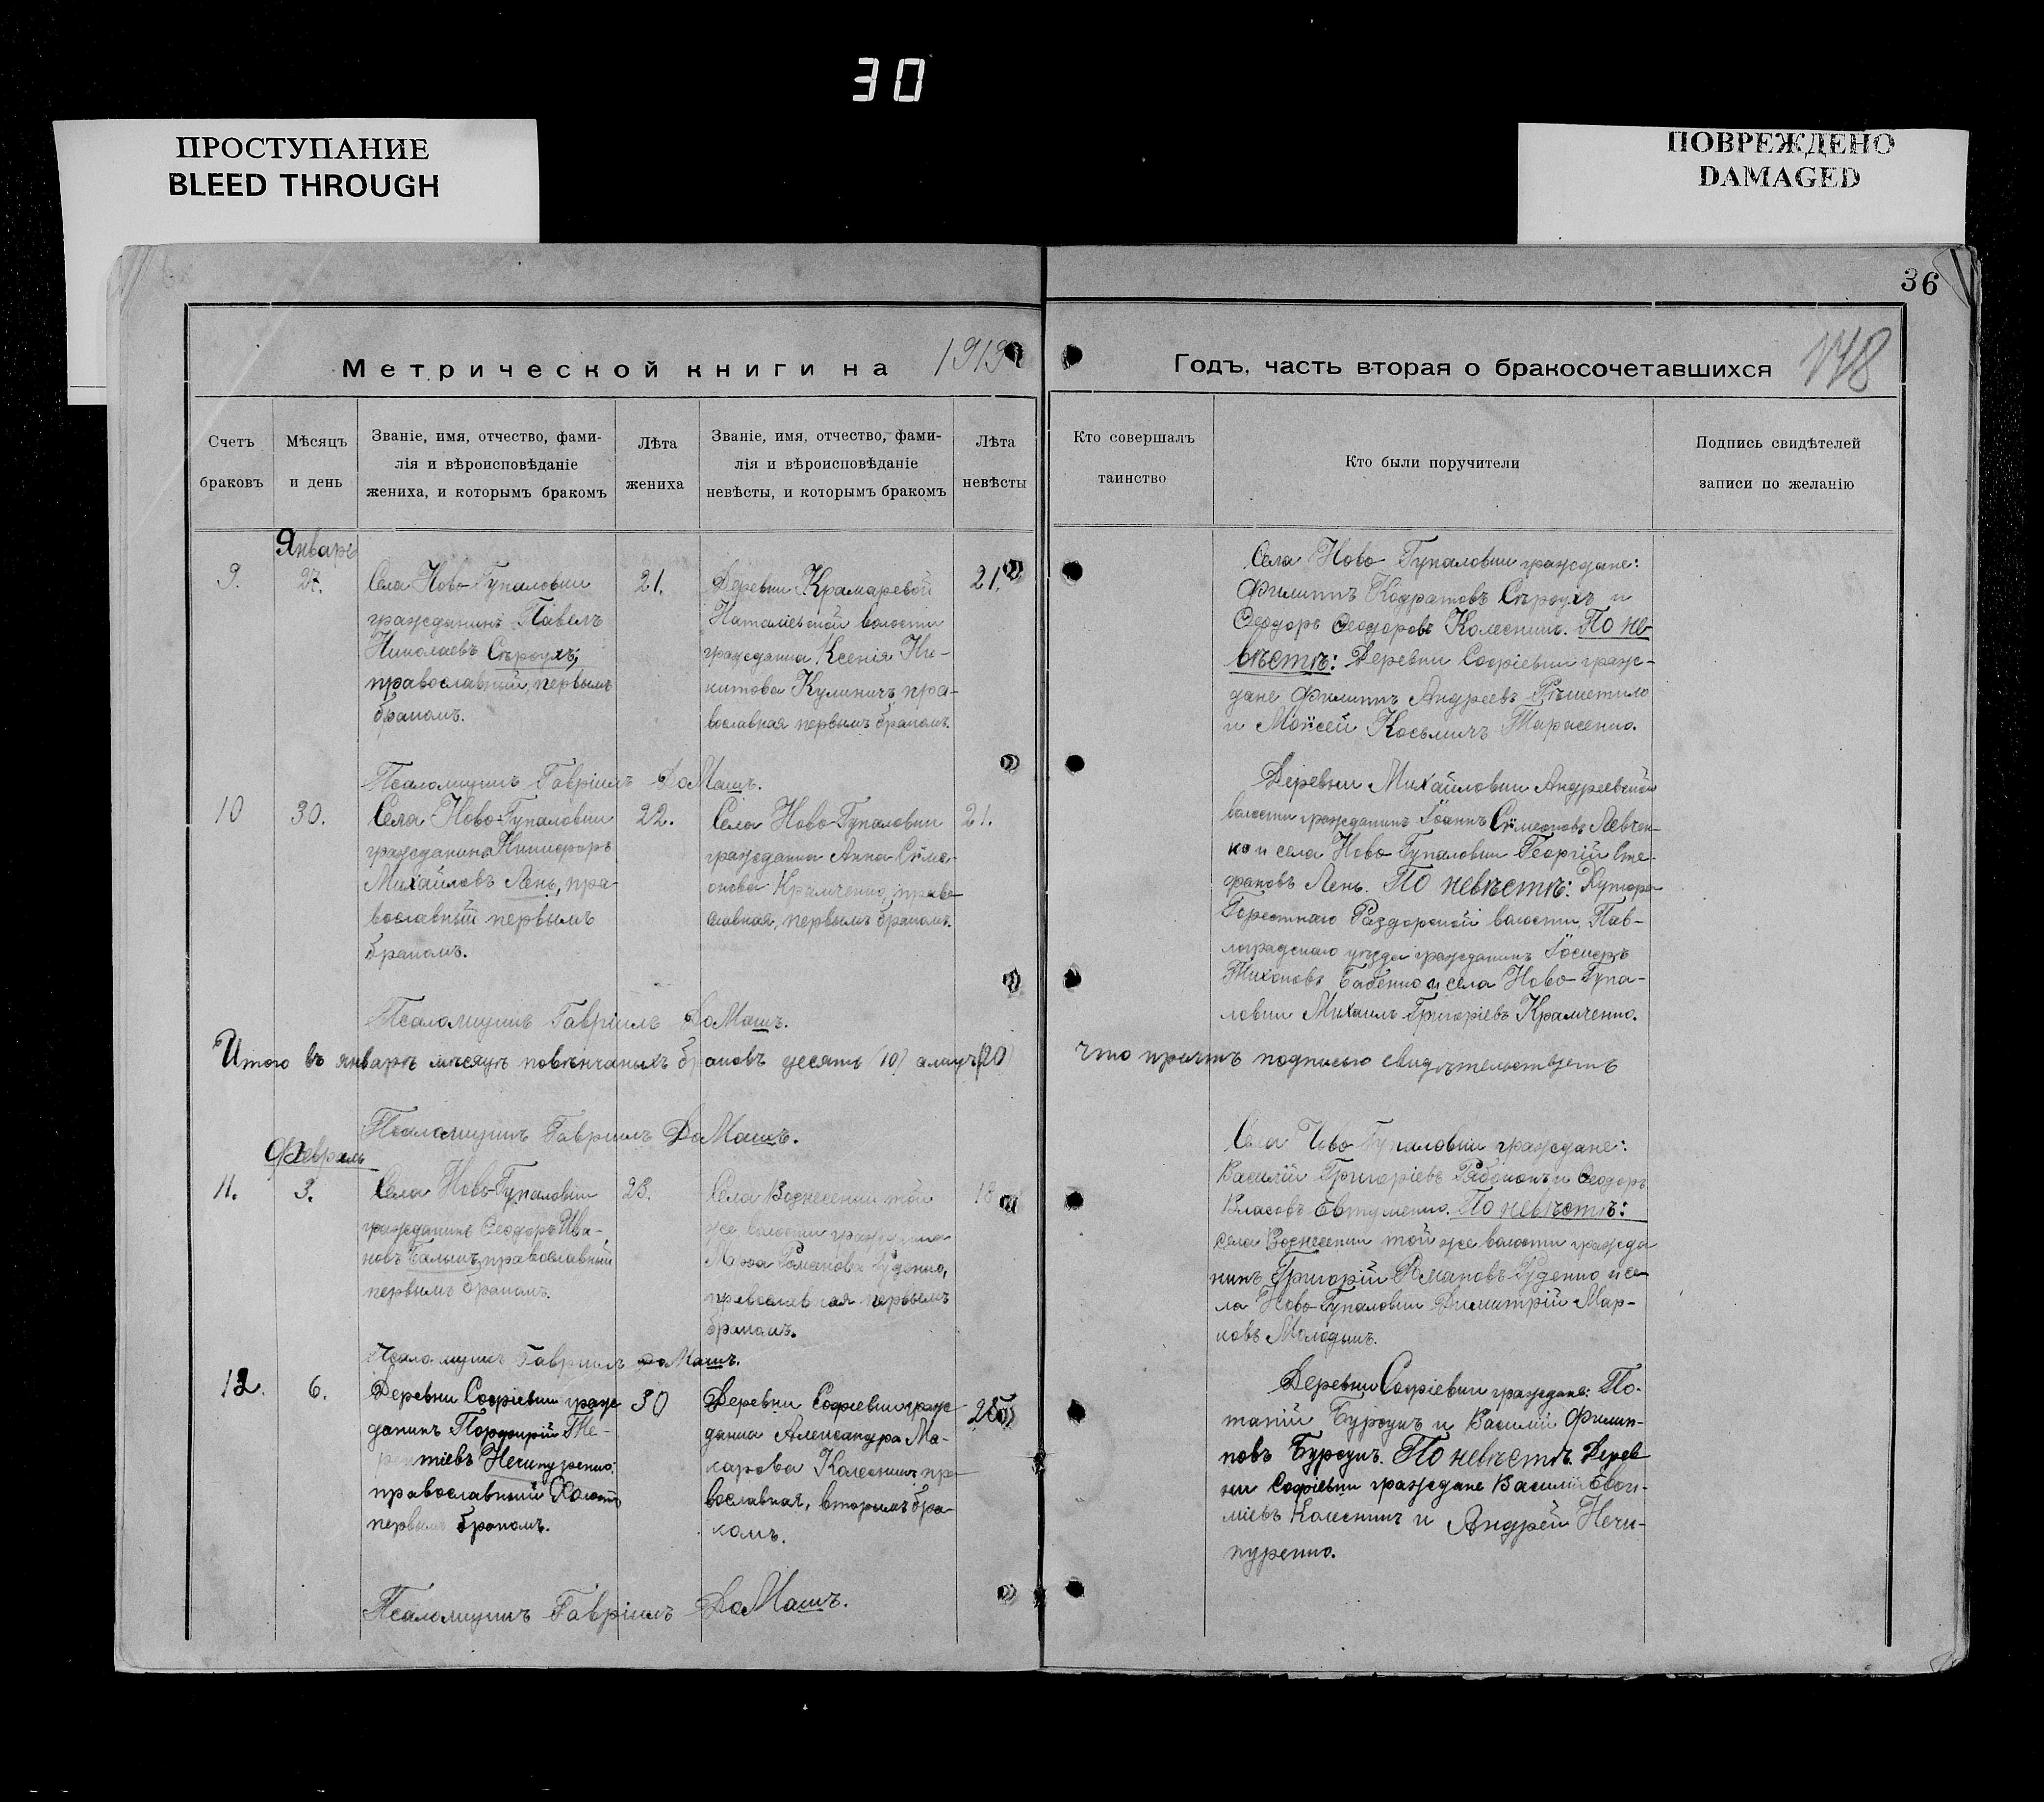 30
ПРОСТУПАНИЕ
BLEED THROUGH
ПОВРЕЖДЕНО
DAMAGED
36
Метрической книги на 1919
Годъ, часть вторая о бракосочетавшихся
178
Счетъ
браковъ
Мѣсяцъ
и день
Званіе, имя, отчество, фами-
лія и вѣроисповѣданіе
жениха, и которымъ бракомъ
Лѣта
жениха
Званіе, имя, отчество, фами-
лія и вѣроисповѣданіе
невѣсты, и которымъ бракомъ
Лѣта
невѣсты
Кто совершалъ
таинство
Кто были поручители
Подпись свидѣтелей
записи по желанію
Январь
9.
27.
Села Ново-Гупаловки
гражданинъ Павелъ
Николаевъ Сѣроухъ,
православный, первымъ
бракомъ.
21.
Деревни Крамаревой
Наталіевской волости
гражданка Ксенія Ни-
китова Кулиничъ пра-
вославная первымъ бракомъ.
21.
Села Ново Гупаловки граждане:
Филиппъ Кодратовъ Сѣроухъ и
Ѳеодоръ Ѳеодоровъ Колесникъ. По не-
вѣстѣ: Деревни Софіевки граж-
дане Филиппъ Андреевъ Рѣшетило
и Моисей Косьмичъ Тарасенко.
Псаломщикъ Гавріилъ ДоМашъ.
10
30.
Села Ново-Гупаловки
гражданинъ Никифоръ
Михайловъ Лень, пра-
вославный первымъ
бракомъ.
22.
Села Ново-Гупаловки
гражданка Анна Симе-
онова Крамченко, право-
славная, первымъ бракомъ.
21.
Деревни Михайловки Андреевской
волости гражданинъ Іоаннъ Симеоновъ Левчен-
ко и села Ново Гупаловки Георгій Сте-
фановъ Лень. По невѣстѣ: Хутора
Раздорской волости, Пав-
лоградскаго уѣзда гражданинъ Іосифъ
Тихоновъ Бабенко и села Ново-Гупа-
ловки Михаилъ Григоріевъ Крамченко.
Псаломщикъ Гавріилъ ДоМашъ.
Итого въ январѣ мѣсяцѣ повѣнчаныхъ браковъ десять (10) (20)
что причтъ подписью свидѣтельствуетъ
Псаломщикъ Гавріилъ ДоМашъ.
Февраль
11.
3.
Села Ново-Гупаловки
гражданинъ Ѳеодоръ Ива-
новъ православный
первымъ бракомъ.
23.
Села Вознесенки той
же волости гражданка
Романова Руденко,
православная первымъ
бракомъ.
18
Села Ново Гупаловки граждане:
Василій Григоріевъ и Ѳеодоръ
Власовъ Евтушенко. По невѣстѣ:
села Вознесенки той же волости гражда
нинъ Григорій Романовъ Руденко и се-
ла Ново-Гупаловки Димитрій Мар-
ковъ Молодыкъ.
Псаломщикъ Гавріилъ ДоМашъ.
12.
6.
Деревни Софіевки граж
данинъ Порфирій Те-
рентіевъ Нечипуренко,
православный
первымъ бракомъ.
30
Деревни Софіевки граж
данка Александра Ма-
карова Колесникъ пра
вославная, вторымъ бра-
комъ.
25
Деревни Софіевки граждане: По-
тапій Бурсукъ и Василій Филип-
повъ Бурсукъ. По невѣстѣ. Дерев
ни Софіевки граждане Василій Евфи-
міевъ Колесникъ и Андрей Нечи-
пуренко.
Псаломщикъ Гавріилъ ДоМашъ.